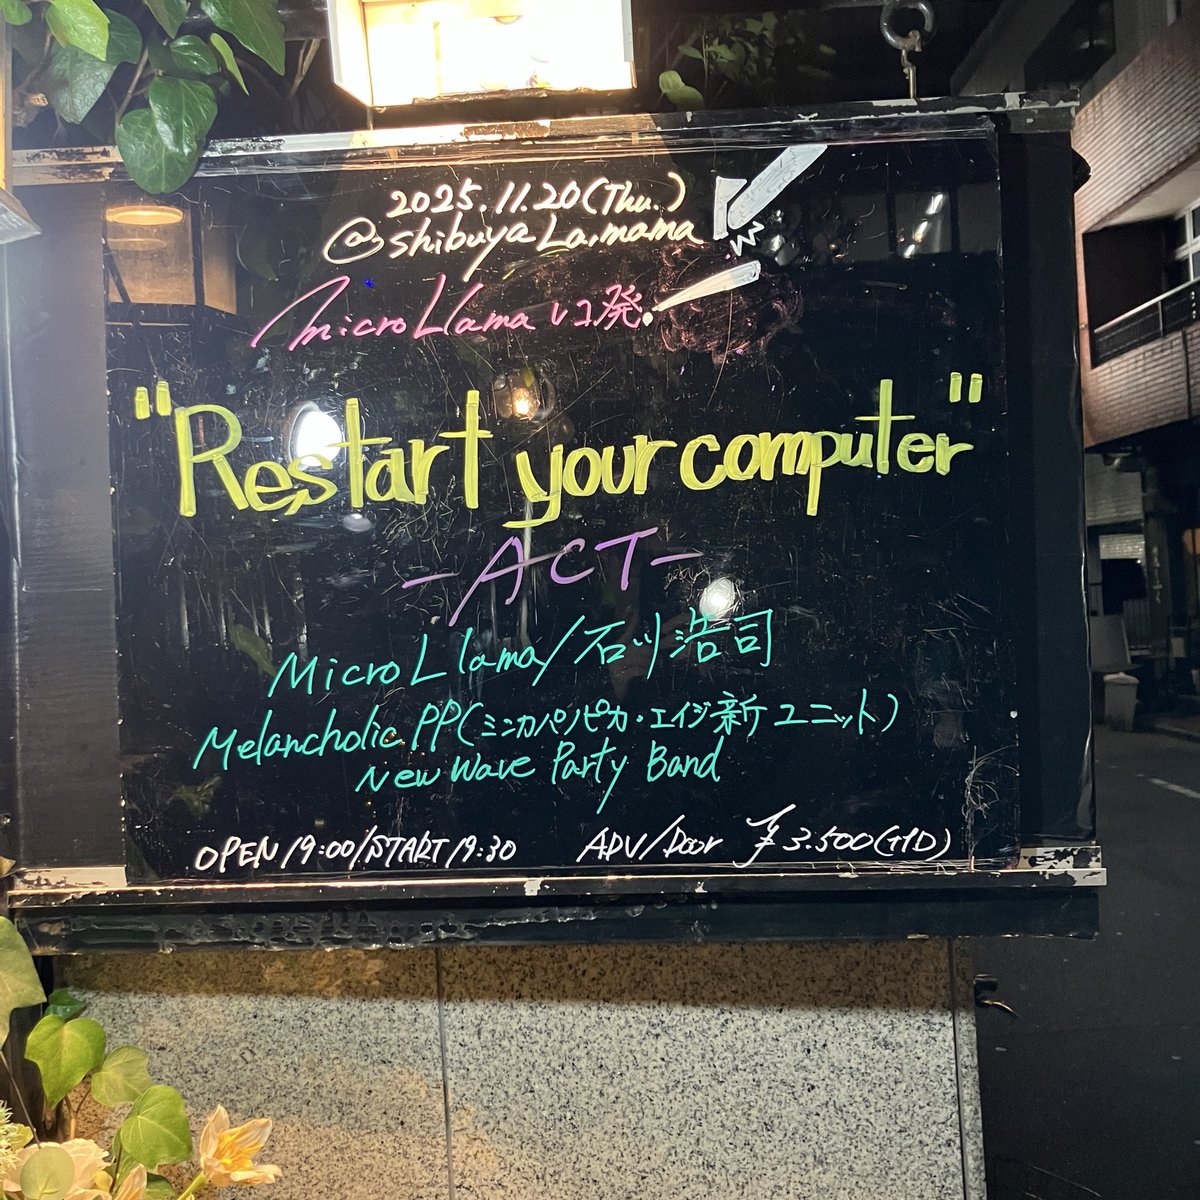 2025.11.20(Thu.)
@shibuya La.mama
Micro Llama レコ発!
"Restart your computer"
-ACT-
Micro Llama/石川浩司
Melancholic PP(ミンカパノピカ・エイジ新ユニット)
New Wave Party Band
OPEN 19:00/START 19:30 ADV/Door ¥3.500(+1D)